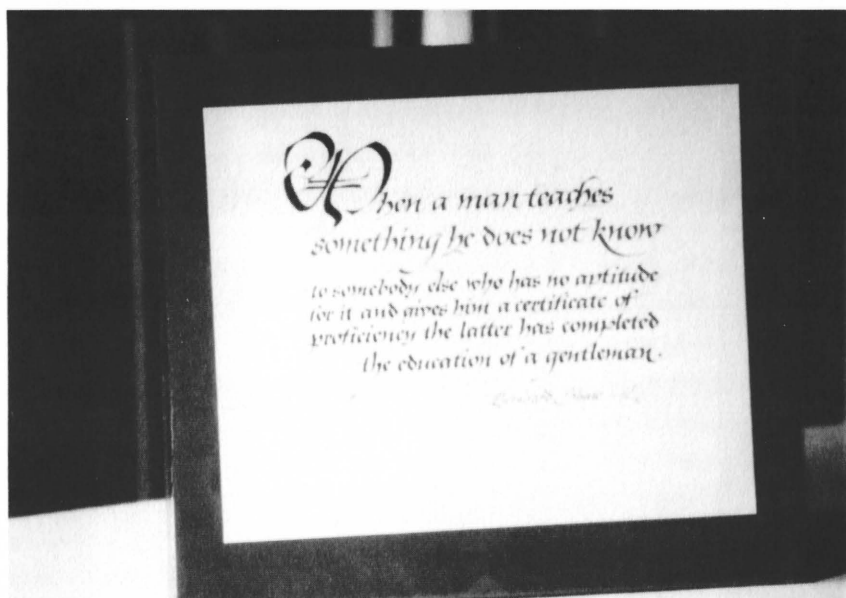 When a man teaches
something he does not know
to somebody else who has no aptitude
for it and gives him a certificate of
proficiency the latter has completed
the education of a gentleman.